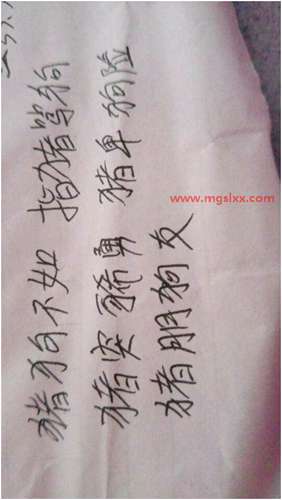 猪狗不如 指猪骂狗
猪突豨勇 猪卑狗险
猪朋狗友
www.mgslxx.com